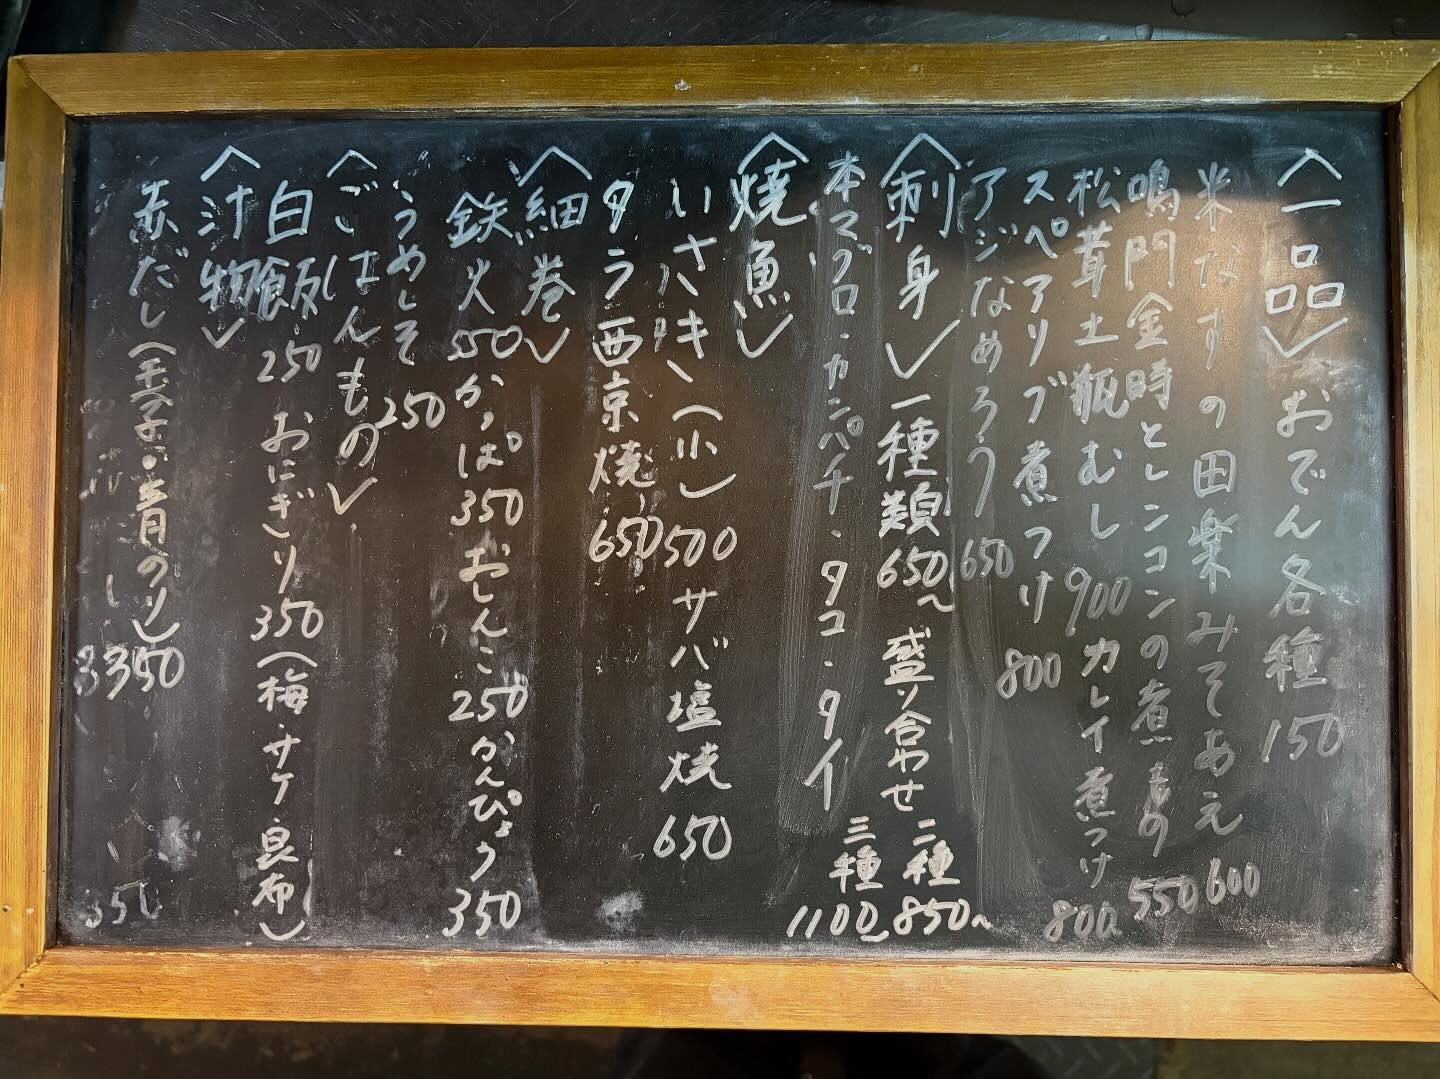 〈一品〉おでん各種 150
米なすの田楽みそあえ 600
鳴門金時とレンコンの煮もの 550
松茸土瓶むし 900 カレイ煮つけ 800
スペアリブ煮つけ 800
アジなめろう 650
〈刺身〉一種類 650〜 盛り合わせ 二種 850〜
三種 1100〜
本マグロ・カンパチ・タコ・タイ
〈焼魚〉
いさき(小) 500 サバ塩焼 650
タラ西京焼 650
〈細巻〉
鉄火 550 かっぱ 350 おしんこ 250 かんぴょう 350
うめしそ 250
〈ごはんもの〉
白飯 250 おにぎり 350 (梅・サケ・昆布)
〈汁物〉
赤だし(玉子・青のり) 350